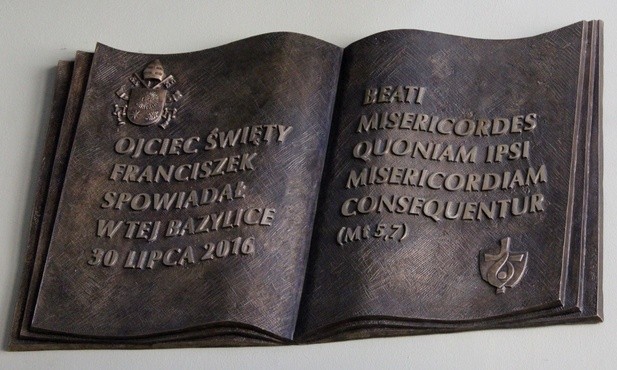 OJCIEC ŚWIĘTY
FRANCISZEK
SPOWIADAŁ
W TEJ BAZYLICE
30 LIPCA 2016
BEATI
MISERICORDES
QUONIAM IPSI
MISERICORDIAM
CONSEQUENTUR
(Mt 5,7)